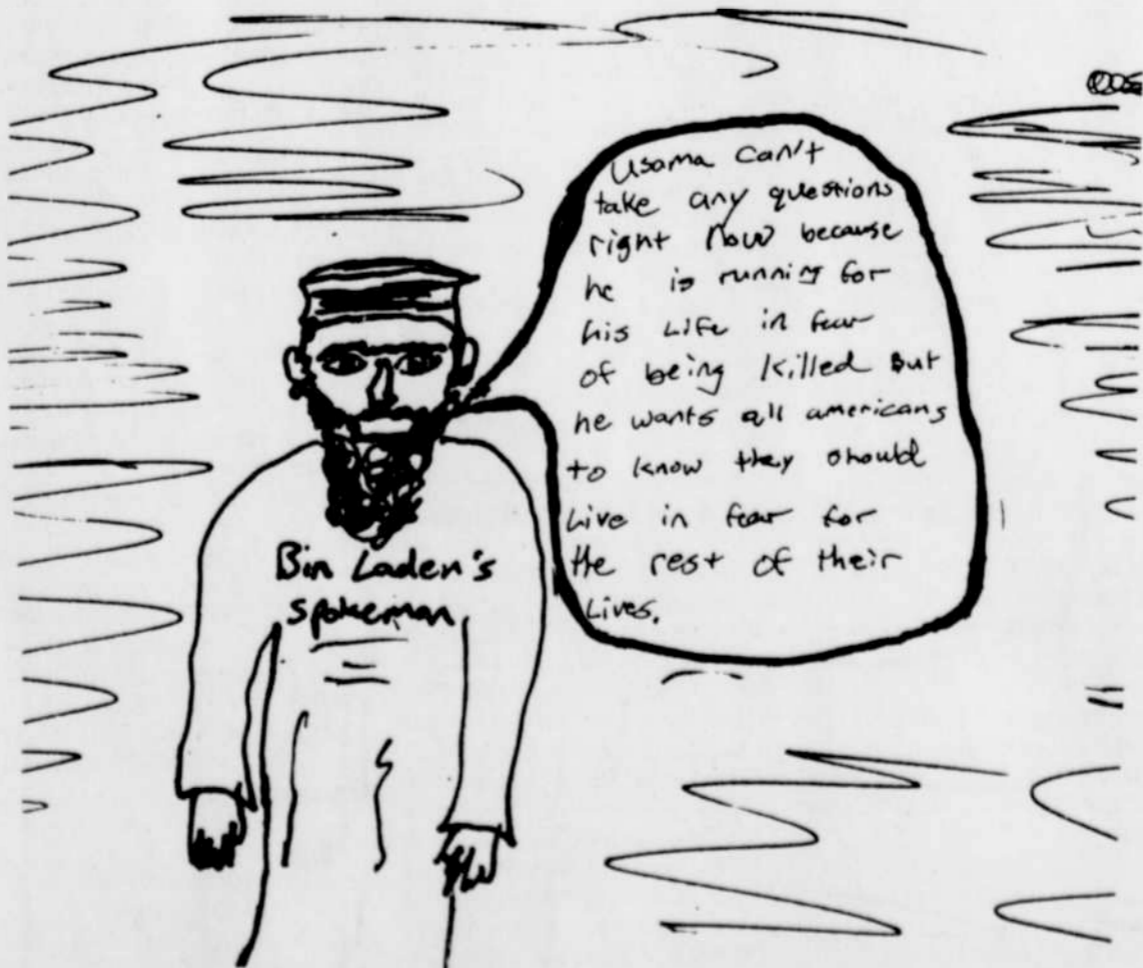 Usama can't
take any questions
right now because
he is running for
his Life in fear
of being killed But
he wants all americans
to know they should
Live in fear for
the rest of their
Lives.
Bin Laden's
spokeman